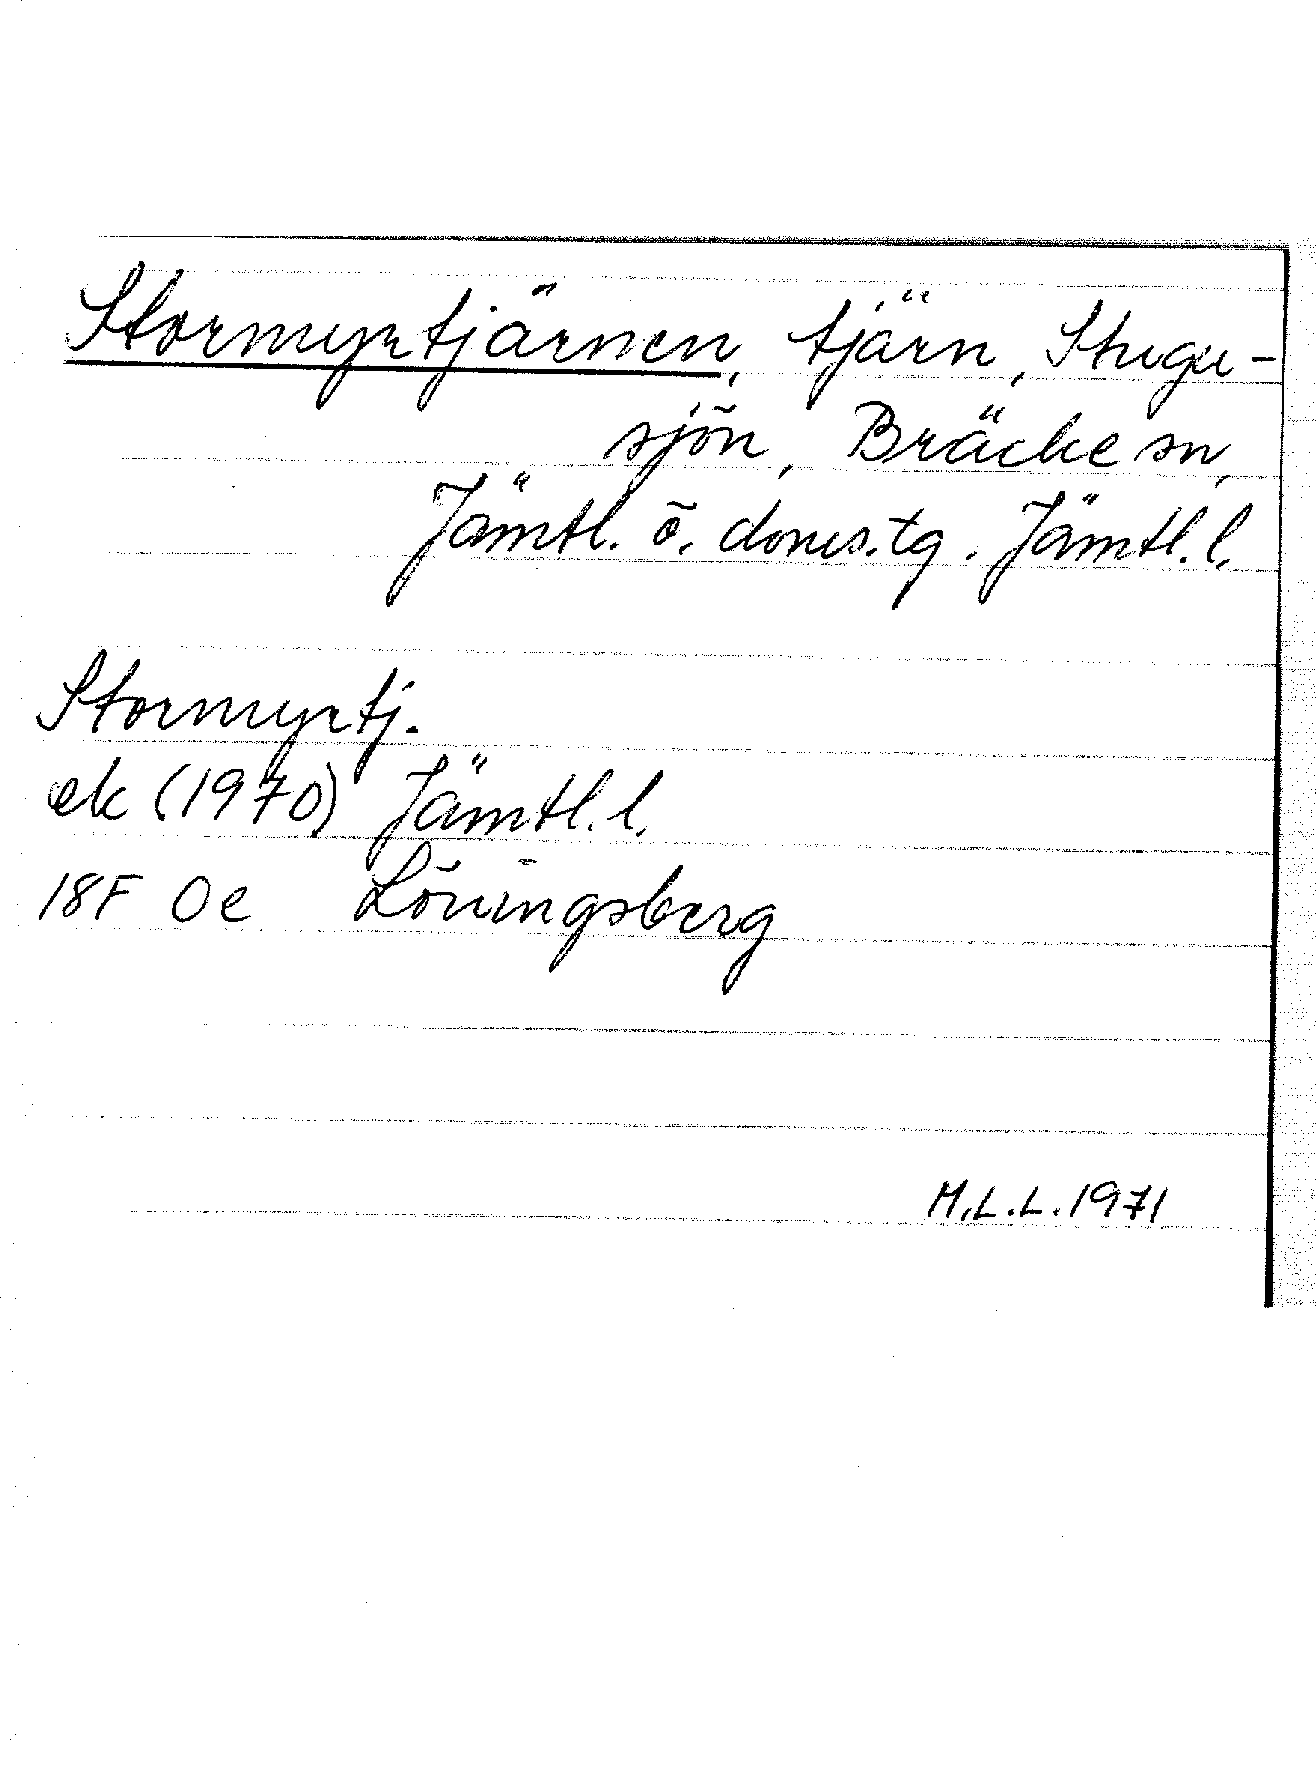 Stormyrtjärnen, tjärn, Stugu-
sjön, Bräcke sn,
Jämtl. ö. doms.tg. Jämtl.l.
Stormyrtj.
ek (1970) Jämtl.l.
18F 0e Löningsberg
M.L.L. 1971